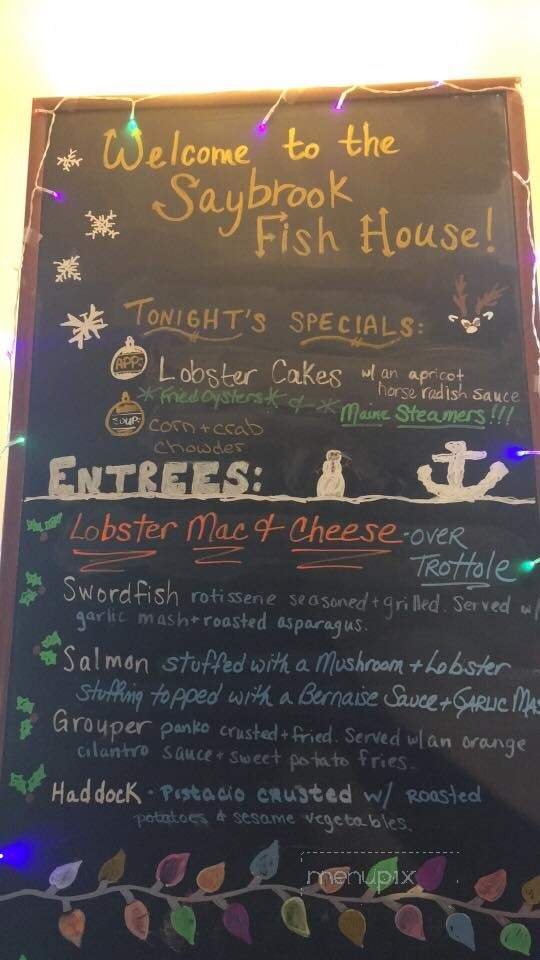 Welcome to the
Saybrook
Fish House!
TONIGHT'S SPECIALS:
APP: Lobster Cakes w/ an apricot
horse radish sauce
*Fried Oysters* & * Maine Steamers!!!
SOUP: Corn + crab
chowder
ENTREES:
Lobster Mac & Cheese - over
Trottole
Swordfish rotisserie seasoned + grilled. Served w/
garlic mash + roasted asparagus.
Salmon stuffed with a Mushroom + Lobster
stuffing topped with a Bernaise Sauce + GARLIC MAS
Grouper panko crusted + fried. Served w/ an orange
cilantro sauce + sweet potato fries.
Haddock - Pistacio crusted w/ Roasted
potatoes & sesame vegetables.
menupix